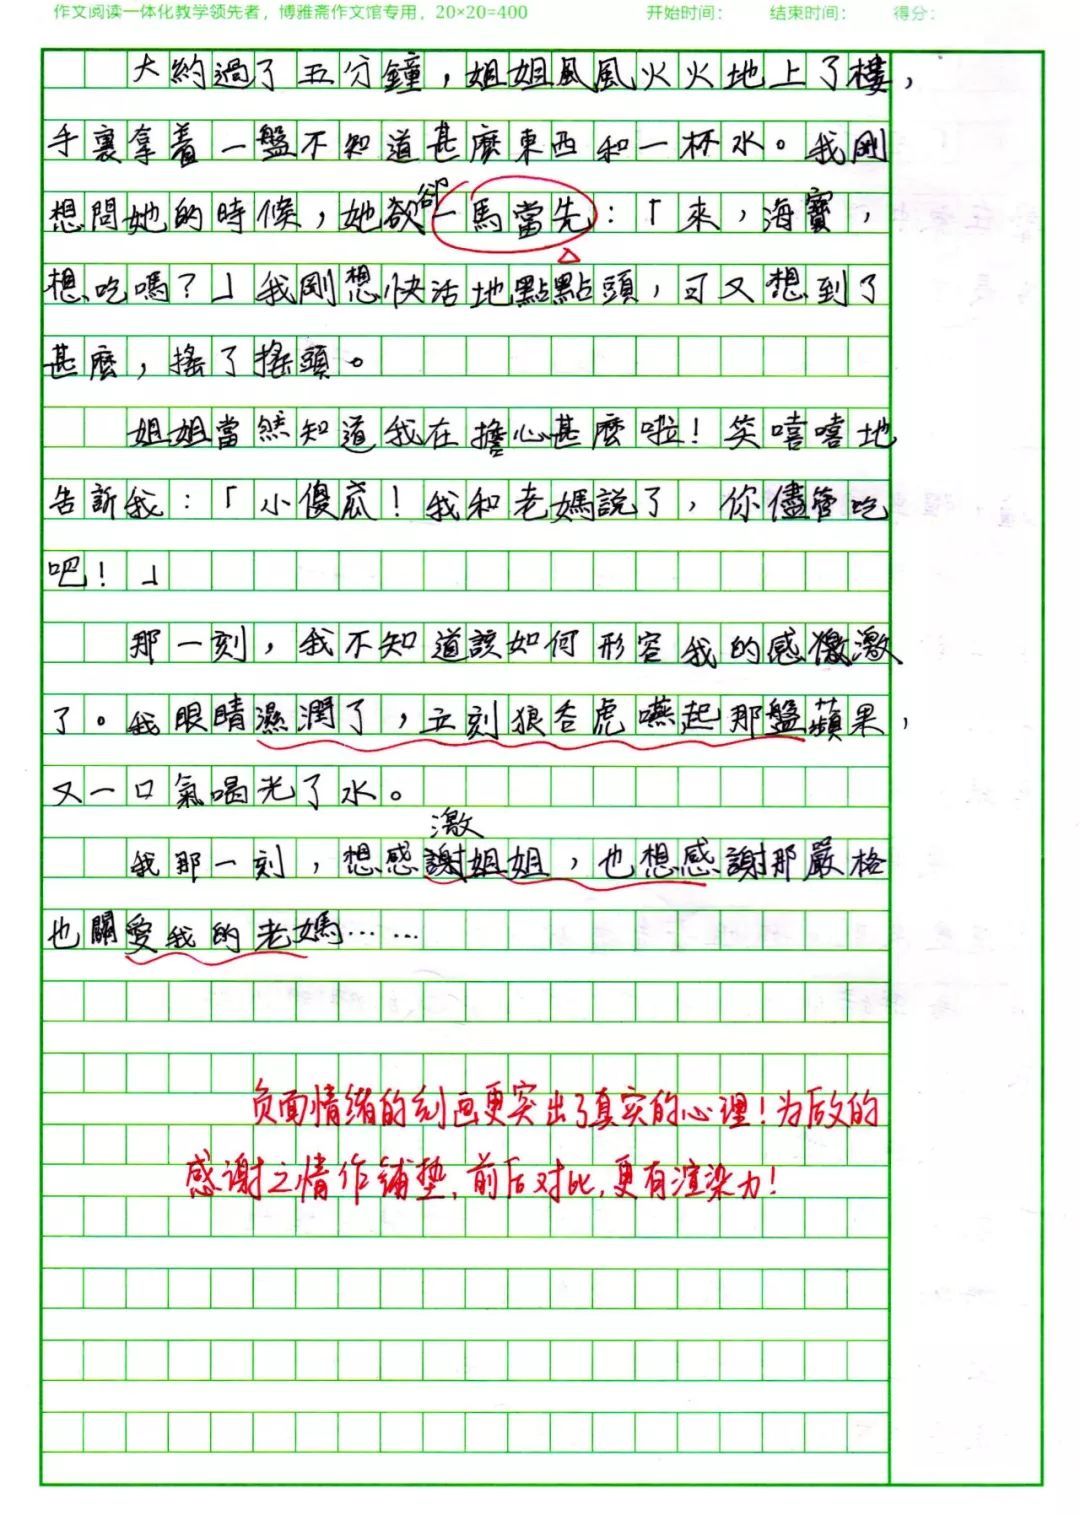 作文阅读一体化教学领先者，博雅斋作文馆专用，20×20=400 开始时间： 结束时间： 得分：
大約過了五分鐘，姐姐風風火火地上了樓，
手裏拿着一盤不知道甚麼東西和一杯水。我剛
卻
想問她的時候，她欲一馬當先：「來，海寶，
想吃嗎？」我剛想快活地點點頭，可又想到了
甚麼，搖了搖頭。
姐姐當然知道我在擔心甚麼啦！笑嘻嘻地
告訴我：「小傻瓜！我和老媽說了，你儘管吃
吧！」
那一刻，我不知道該如何形容我的感激
了。我眼睛濕潤了，立刻狼吞虎嚥起那盤蘋果，
又一口氣喝光了水。
激
我那一刻，想感謝姐姐，也想感謝那嚴格
也關愛我的老媽……
负面情绪的刻画更突出了真实的心理！为后文的
感谢之情作铺垫，前后对比，更有渲染力！